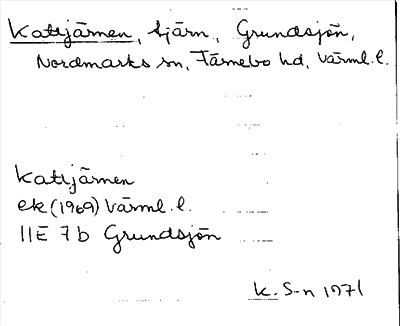 Kattjärnen, tjärn, Grundsjön,
Nordmarks sn, Färnebo hd, Värml. l.
Kattjärnen
ek (1969) Värml. l.
11E 7b Grundsjön
K. S-n 1971